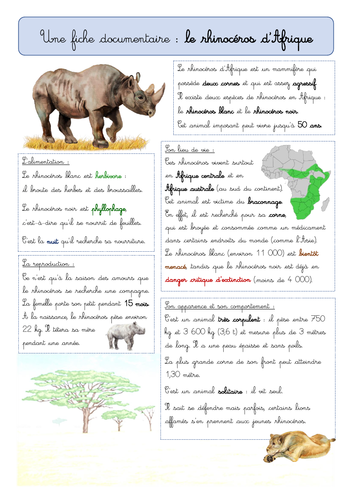 Une fiche documentaire : le rhinocéros d'Afrique
Le rhinocéros d'Afrique est un mammifère qui
possède deux cornes et qui est assez agressif.
Il existe deux espèces de rhinocéros en Afrique :
le rhinocéros blanc et le rhinocéros noir.
Cet animal imposant peut vivre jusqu'à 50 ans.
L'alimentation :
Le rhinocéros blanc est herbivore :
il broute des herbes et des broussailles.
Le rhinocéros noir est phyllophage,
c'est-à-dire qu'il se nourrit de feuilles.
C'est la nuit qu'il recherche sa nourriture.
Son lieu de vie :
Ces rhinocéros vivent surtout
en Afrique centrale et en
Afrique australe (au sud du continent).
Cet animal est victime du braconnage.
En effet, il est recherché pour sa corne,
qui est broyée et consommée comme un médicament
dans certains endroits du monde (comme l'Asie).
Le rhinocéros blanc (environ 11 000) est bientôt
menacé tandis que le rhinocéros noir est déjà en
danger critique d'extinction (moins de 4 000).
La reproduction :
Ce n'est qu'à la saison des amours que
le rhinocéros se recherche une compagne.
La femelle porte son petit pendant 15 mois.
A la naissance, le rhinocéros pèse environ
22 kg. Il tètera sa mère
pendant une année.
Son apparence et son comportement :
C'est un animal très corpulent : il pèse entre 750
kg et 3 600 kg (3,6 t) et mesure plus de 3 mètres
de long. Il a une peau épaisse et sans poils.
La plus grande corne de son front peut atteindre
1,30 mètre.
C'est un animal solitaire : il vit seul.
Il sait se défendre mais parfois, certains lions
affamés s'en prennent aux jeunes rhinocéros.